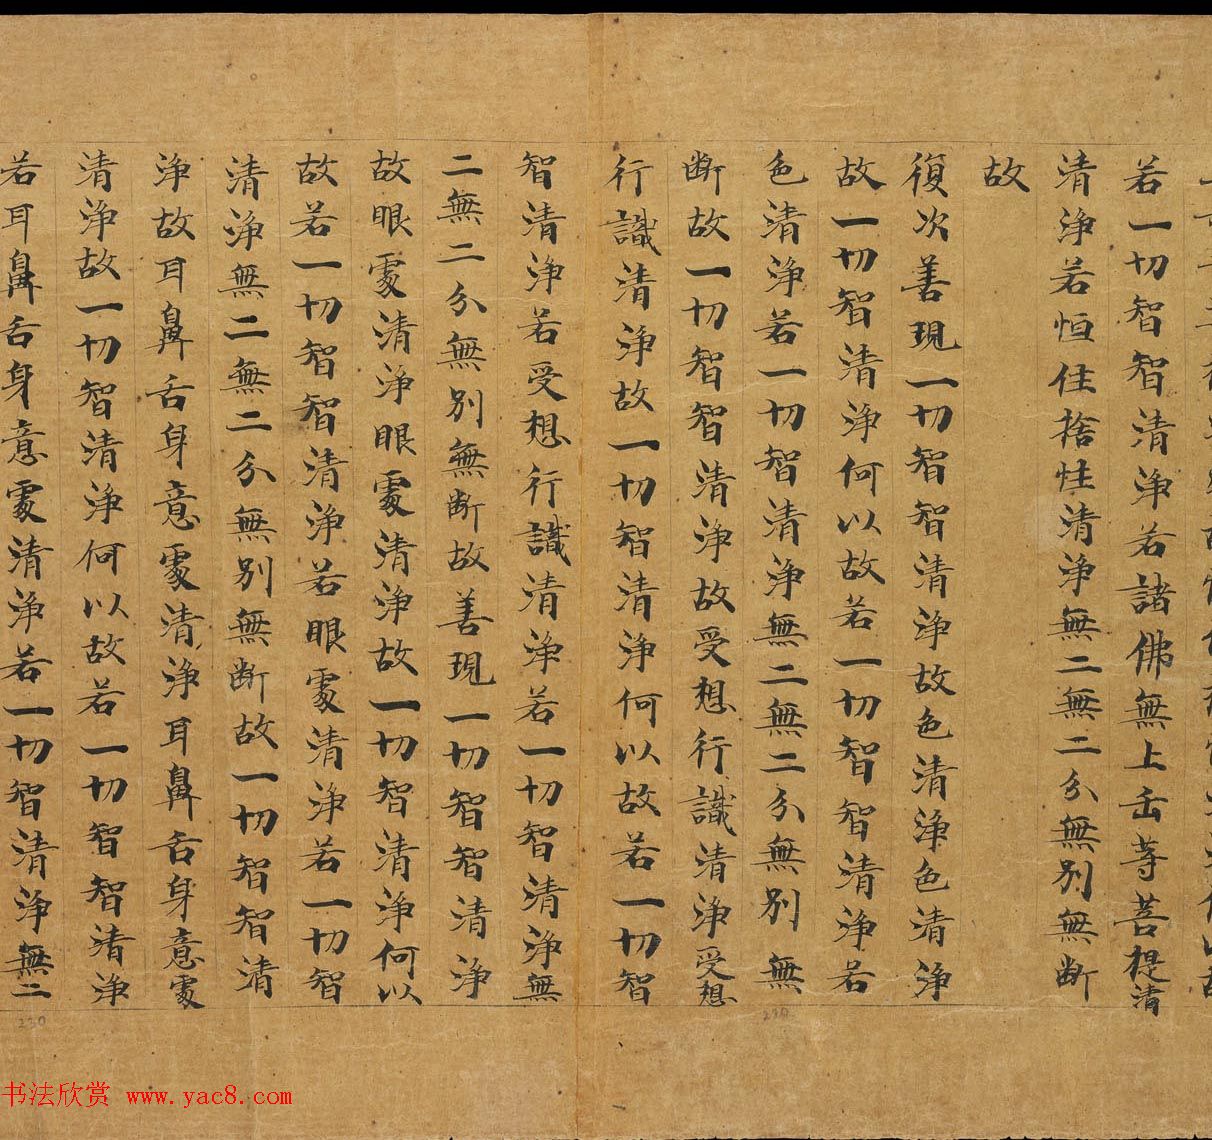 若一切智智清淨若諸佛無上正等菩提清
清淨若恒住捨性清淨無二無二分無別無斷
故
復次善現一切智智清淨故色清淨色清淨
故一切智清淨何以故若一切智智清淨若
色清淨若一切智清淨無二無二分無別無
斷故一切智智清淨故受想行識清淨受想
行識清淨故一切智清淨何以故若一切智
智清淨若受想行識清淨若一切智清淨無
二無二分無別無斷故善現一切智智清淨
故眼處清淨眼處清淨故一切智清淨何以
故若一切智智清淨若眼處清淨若一切智
清淨無二無二分無別無斷故一切智智清
淨故耳鼻舌身意處清淨耳鼻舌身意處
清淨故一切智清淨何以故若一切智智清淨
若耳鼻舌身意處清淨若一切智清淨無二
230
230
书法欣赏 www.yac8.com